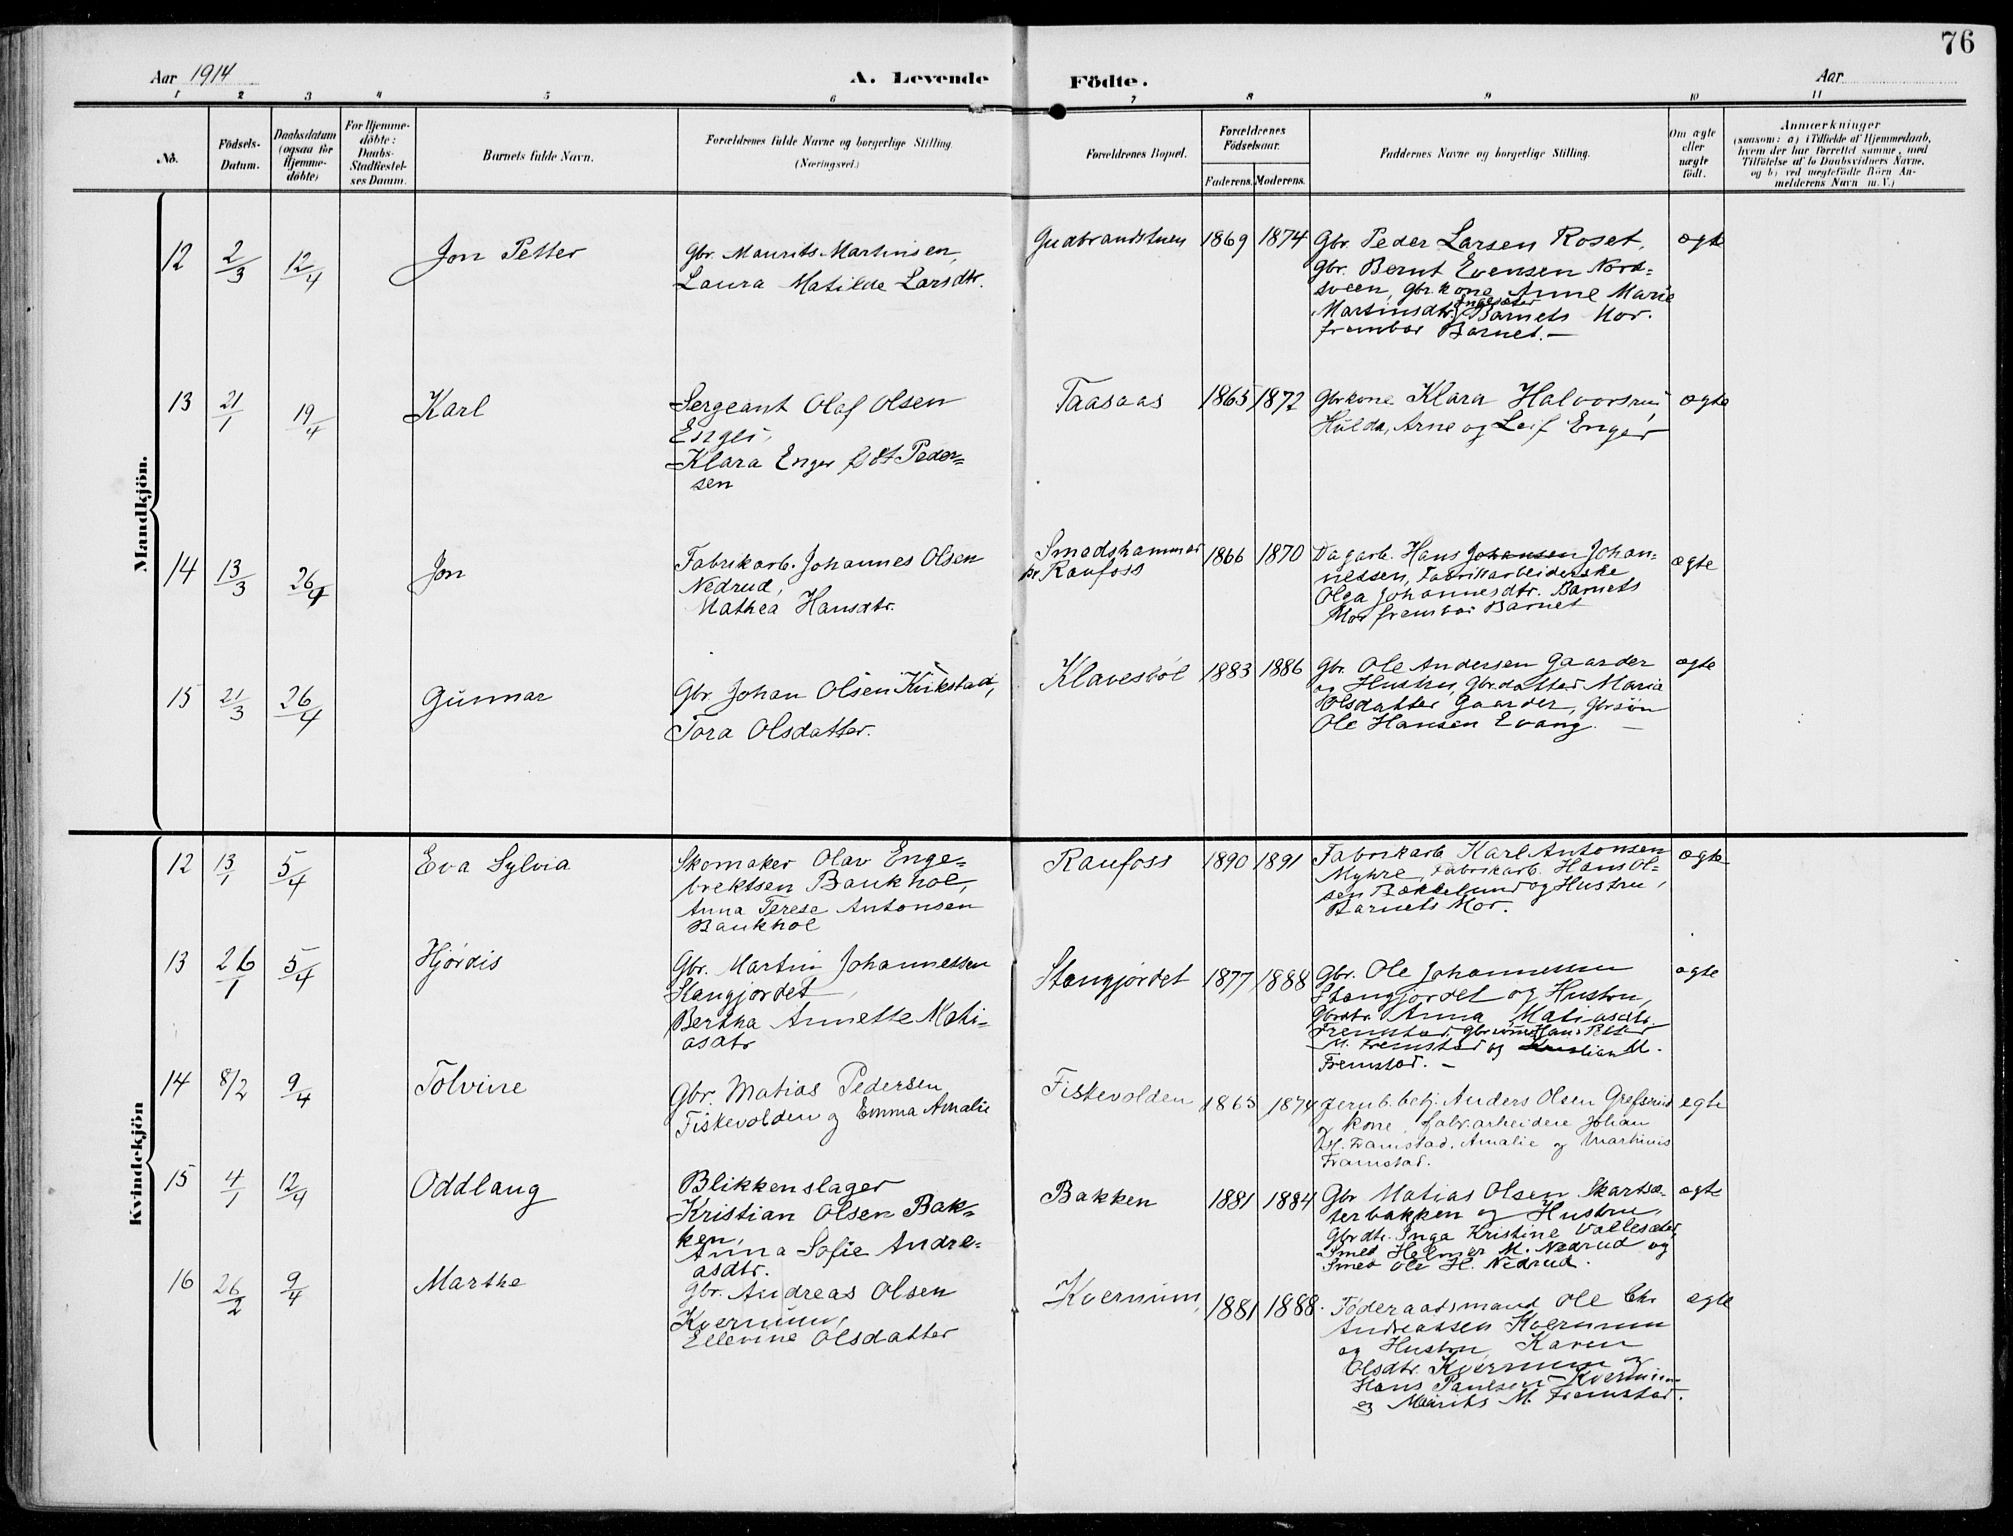 76
Aar 1914
A. Levende Födte.
Aar
1 2 3 4 5 6 7 8 9 10 11
No.
Födsels-Datum.
Daabsdatum (ogsaa for Hjemme-döbte)
For Hjemme-döbte: Daabs-Stadfæstel-ses Datum.
Barnets fulde Navn.
Forældrenes fulde Navne og borgerlige Stilling. (Næringsvei.)
Forældrenes Bopæl.
Forældrenes Födselsaar.
Faderens. Moderens.
Faddernes Navne og borgerlige Stilling.
Om ægte eller uægte födt.
Anmærkninger
(saasom: a) i Tilfælde af Hjemmedaab, hvem der har forrettet samme, med Tilföielse af to Daabsvidners Navne, og b) ved uægtefödte Börn An-melderens Navn m. V.)
Mandkjön.
12 2/3 12/4 Jon Petter
Gbr. Maurits Martinsen,
Laura Matilde Larsdtr.
Gudbrandstuen 1869 1874
Gbr. Peder Larsen Roset,
Gbr. Bernt Evensen Nord=
sveen, gbr.kone Anne Marie
Martinsdtr. Barnets Mor.
frembar Barnet.—
ægte
13 21/1 19/4 Karl
Sergeant Olaf Olsen
Enger,
Klara Enger født Peder=
sen
Taasaas 1865 1872
Gbrkone Klara Halvorsrud,
Hulda, Arne og Leif Enger
ægte
14 13/3 26/4 Jon
Fabrikarb. Johannes Olsen
Nedrud,
Mathea Hansdtr.
Smedshammer
pr Raufoss 1866 1870
Dagarb. Hans Johansen Johan=
nessen, Fabrikarbeiderske
Olga Johannesdtr. Barnets
Mor frembar Barnet
ægte
15 21/3 26/4 Gunnar
Gbr Johan Olsen Kirkstad,
Tora Olsdatter.
Klavesböl 1883 1886
Gbr. Ole Andersen Gaarder
og Hustru, Gbr.datter Maria
Olsdatter Gaarder, Gbrsön
Ole Hansen Evang. —
ægte
Kvindekjön
12 13/1 5/4 Eva Sylvia
Skomaker Olav Enge=
brektsen Baukhol,
Anna Terese Antonsen
Baukhol
Raufoss 1890 1891
Fabrikarb Karl Antonsen
Myhre, Fabrikarb. Hans Ol=
sen Bækkelund og Hustru,
Barnets Mor.
ægte
13 26/1 5/4 Hjördis
Gbr. Martin Johannessen
Stangjordet,
Bertha Annette Mati=
asdtr
Stangjordet 1877 1888
Gbr. Ole Johannessen
Stangjordet og Hustru,
Gbrdtr. Anna Matiasdtr.
Fremstad, Gbrsönn Hans Petter
M. Fremstad og Kristian M.
Fremstad. —
ægte
14 8/2 9/4 Tolvine
Gbr. Matias Pedersen
Fiskevolden og Emma Amalie
Fiskevolden 1865 1874
Jernb.betj. Anders Olsen Grefsrud
og kone, fabr.arbeidere Johan
M. Framstad, Amalie og Martinus
Framstad.
egte
15 4/1 12/4 Oddlaug
Blikkenslager
Kristian Olsen Bak=
ken,
Anna Sofie Andre=
asdtr.
Bakken 1881 1884
Gbr Matias Olsen Skartsæ=
terbakken og Hustru,
Gbrdtr. Inga Kristine Vallesæter,
Smed Helmer M. Nedrud og
Smed Ole H. Nedrud.
ægte
16 26/2 9/4 Marthe
Gbr. Andreas Olsen
Kvernum,
Ellevine Olsdatter
Kvernum, 1881 1888.
Föderaadsmand Ole Chr
Andreassen Kvernum
og Hustru, Karen
Olsdtr. Kvernum og
Hans Paulsen Kvernum
og Maurits M. Framstad.
ægte